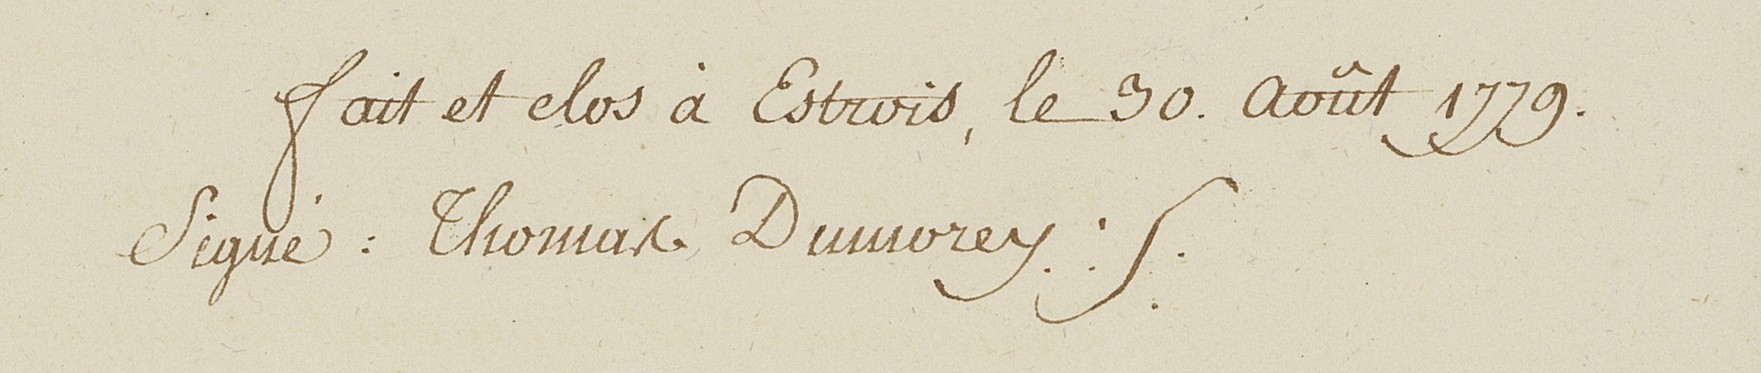 fait et clos à Estrois, le 30. Août 1779.
Signé : Thomas Dumorey